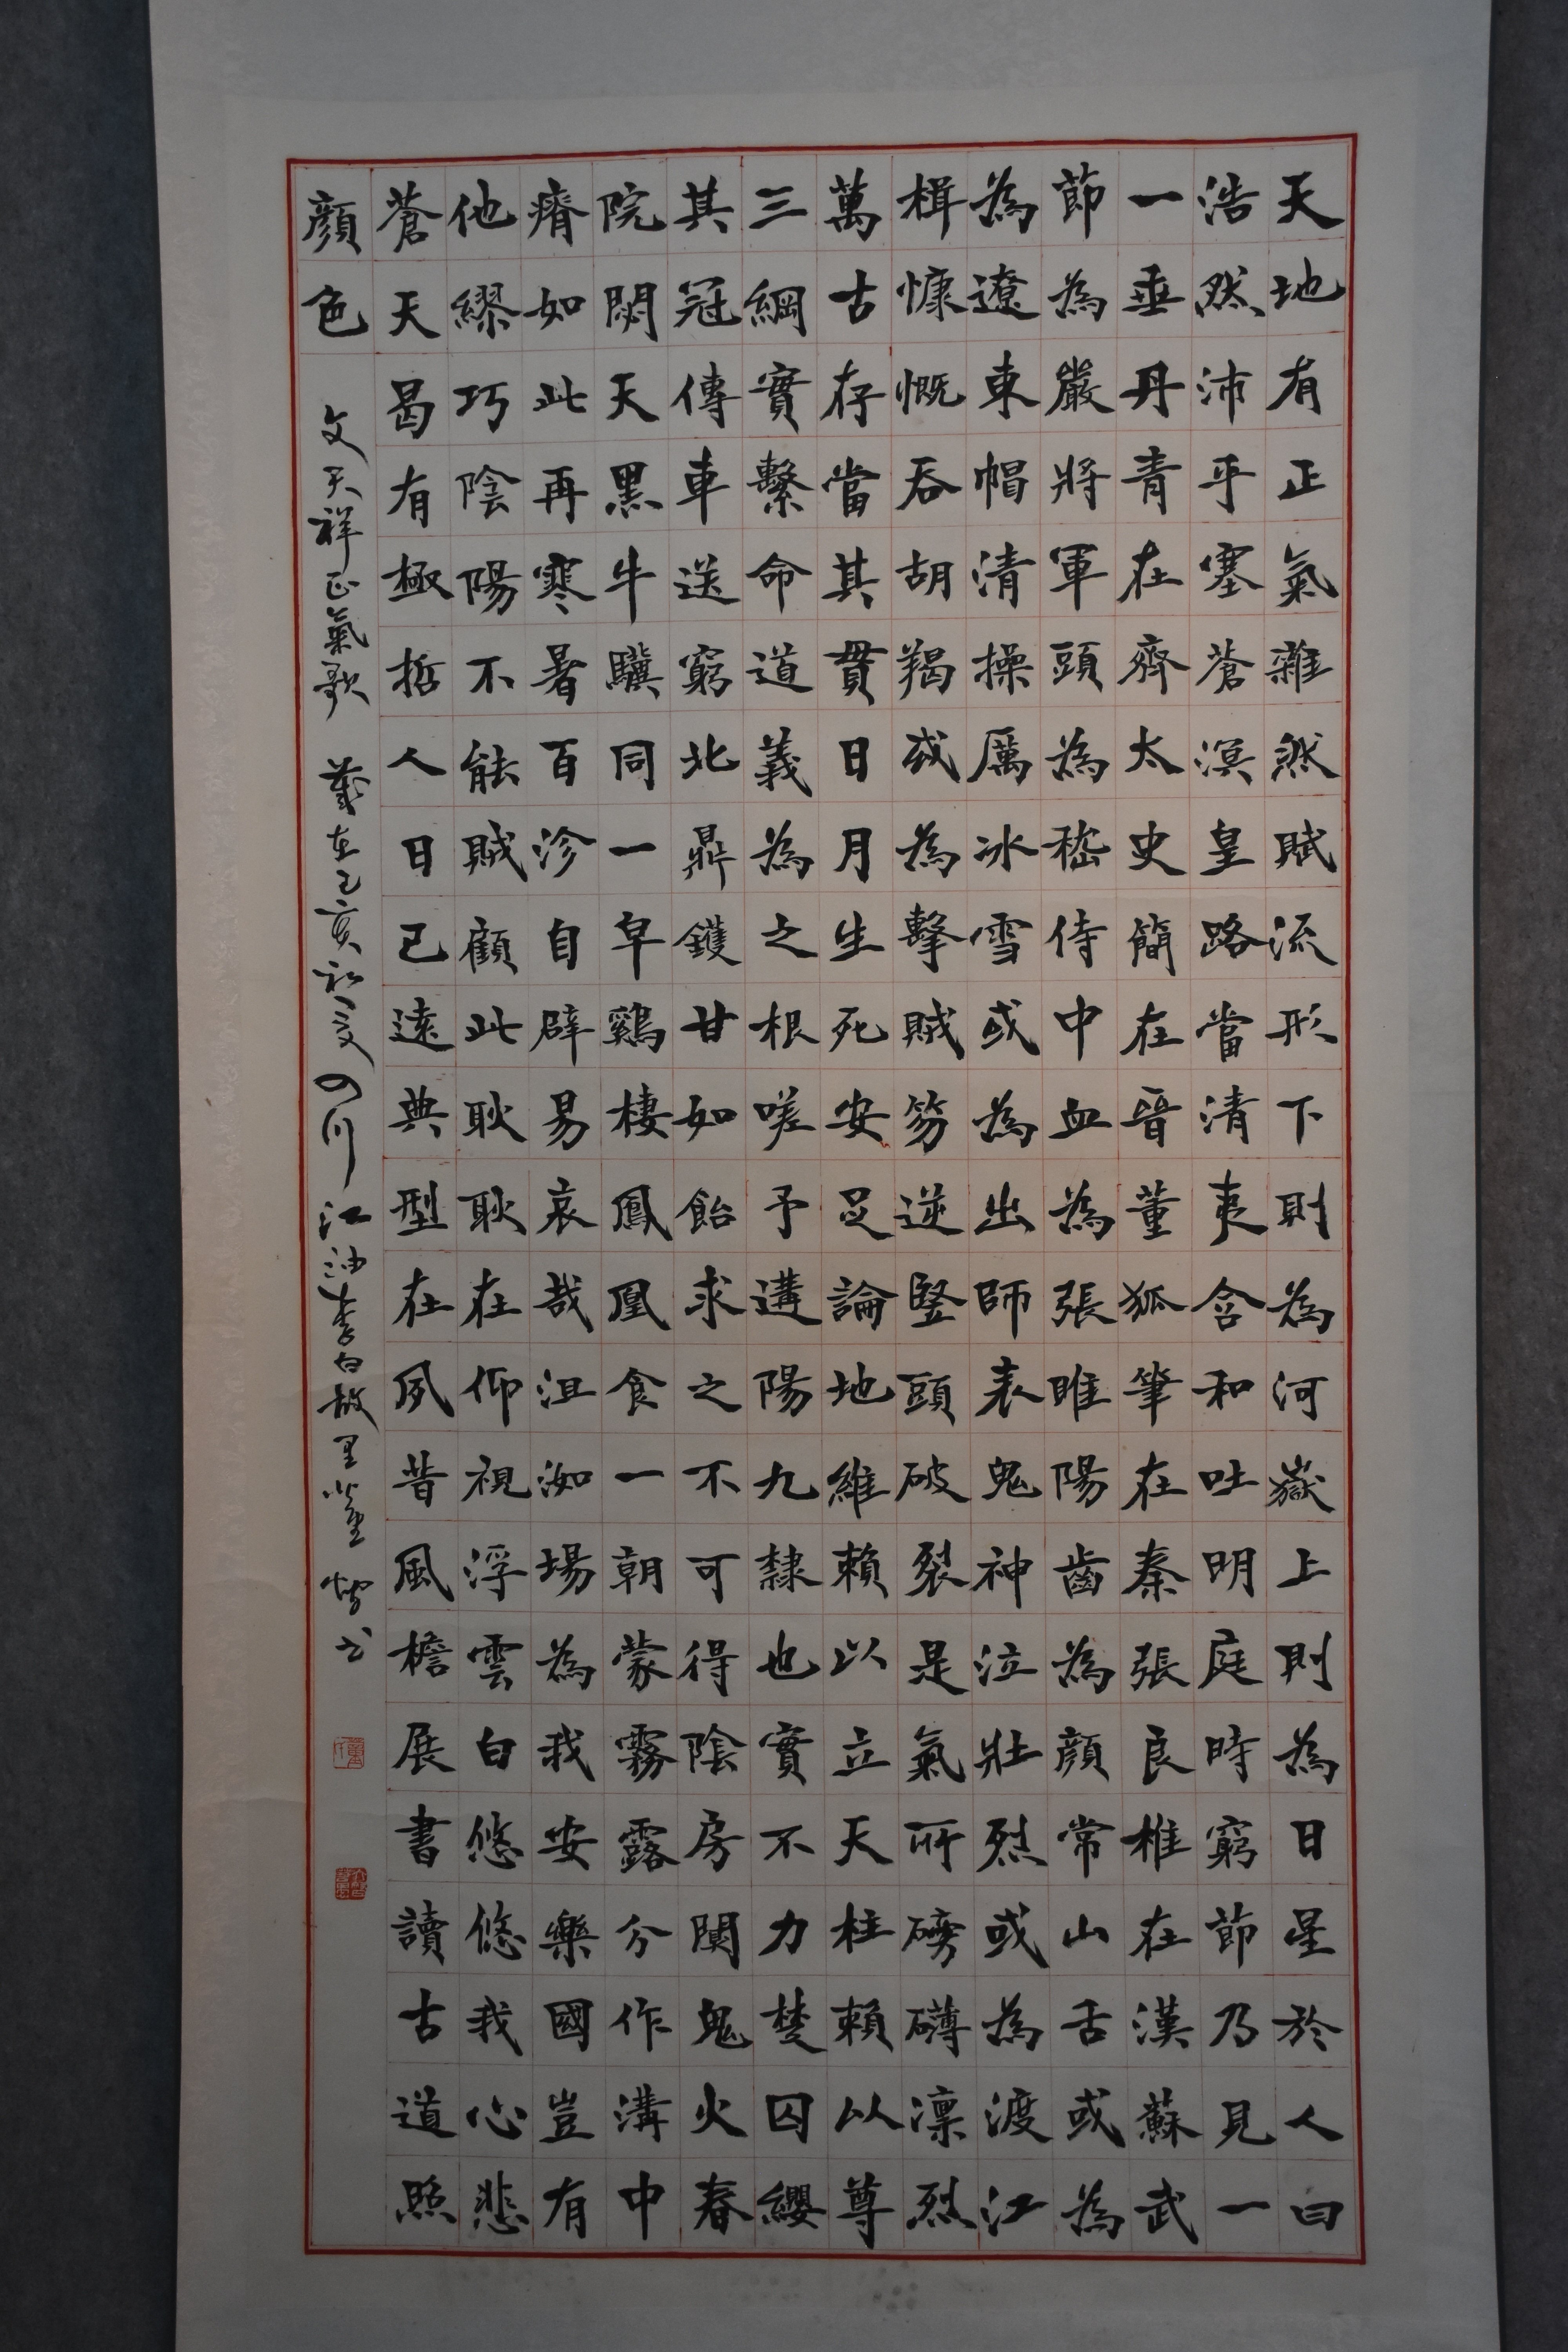 天地有正氣雜然賦流形下則為河嶽上則為日星於人曰
浩然沛乎塞蒼溟皇路當清夷含和吐明庭時窮節乃見一
一垂丹青在齊太史簡在晉董狐筆在秦張良椎在漢蘇武
節為嚴將軍頭為嵇侍中血為張睢陽齒為顔常山舌或為
為遼東帽清操厲冰雪或為出師表鬼神泣壯烈或為渡江
楫慷慨吞胡羯或為擊賊笏逆豎頭破裂是氣所磅礴凜烈
萬古存當其貫日月生死安足論地維賴以立天柱賴以尊
三綱實繫命道義為之根嗟予遘陽九隸也實不力楚囚纓
其冠傳車送窮北鼎鑊甘如飴求之不可得陰房闃鬼火春
院閟天黑牛驥同一皁鷄棲鳳凰食一朝蒙霧露分作溝中
瘠如此再寒暑百沴自辟易哀哉沮洳場為我安樂國豈有
他繆巧陰陽不能賊顧此耿耿在仰視浮雲白悠悠我心悲
蒼天曷有極哲人日已遠典型在夙昔風檐展書讀古道照
顔色
文天祥正氣歌 歲在乙亥初夏四川江油李白故里董 書